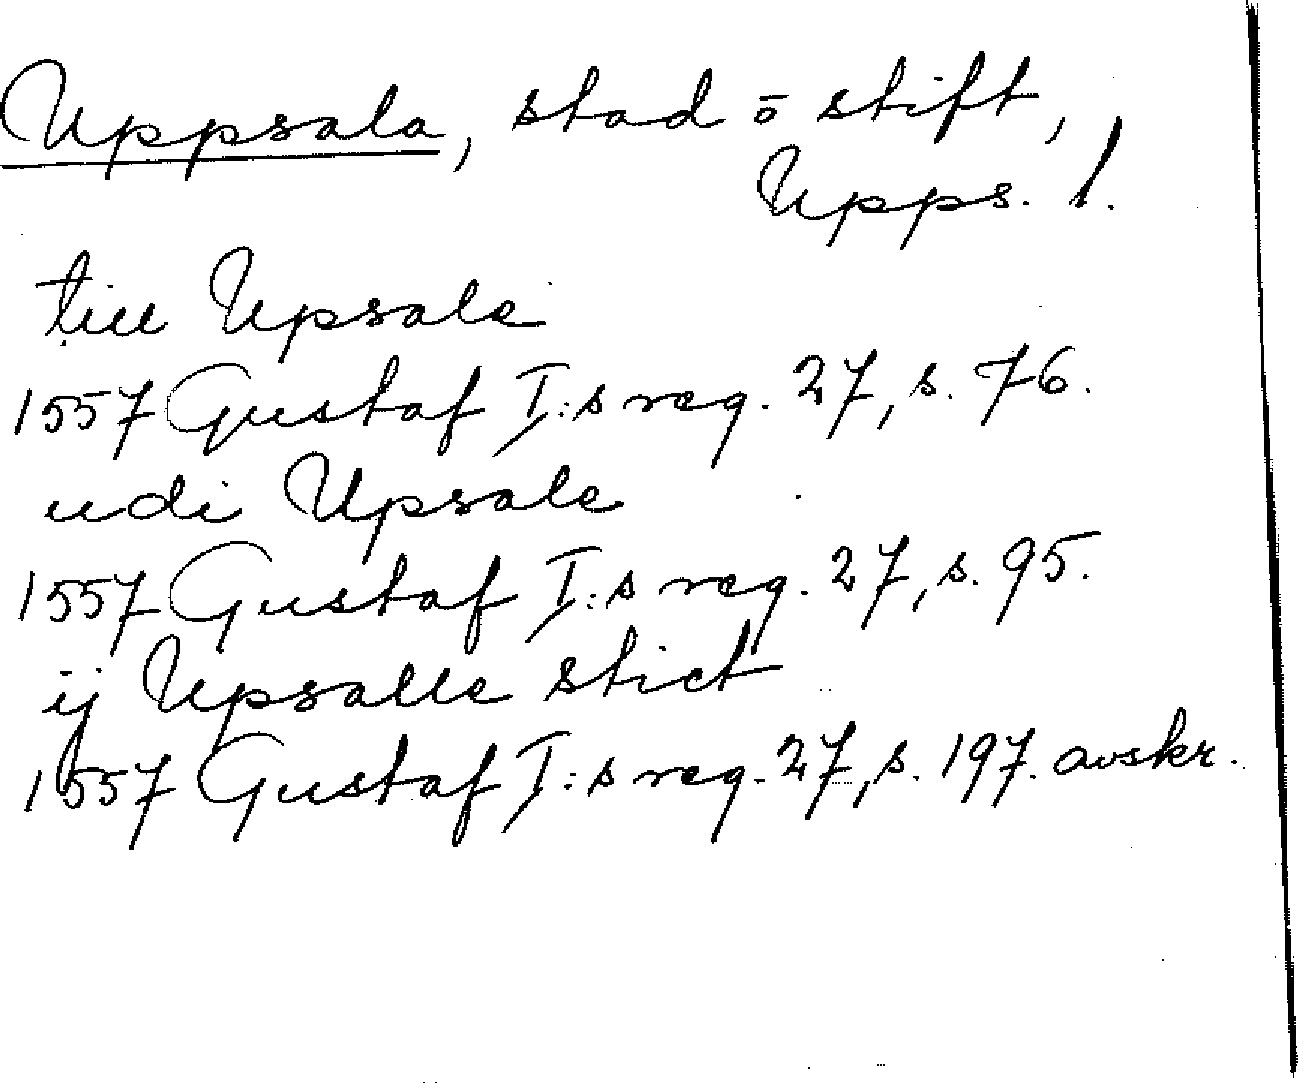 Uppsala, stad ō stift,
Upps. l.
till Upsale
1557 Gustaf I:s reg. 27, s. 76.
udi Upsale
1557 Gustaf I:s reg. 27, s. 95.
ij Upsalle stict
1557 Gustaf I:s reg. 27, s. 197. avskr.